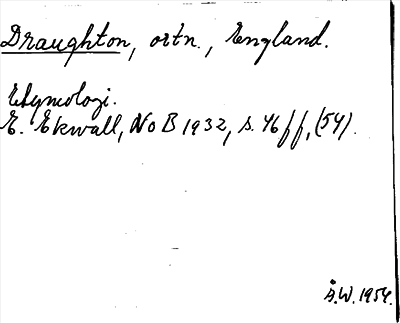 Draughton, ortn., England.
Etymologi.
E. Ekwall, NoB 1932, s. 46 ff, (54).
Å.W. 1954.